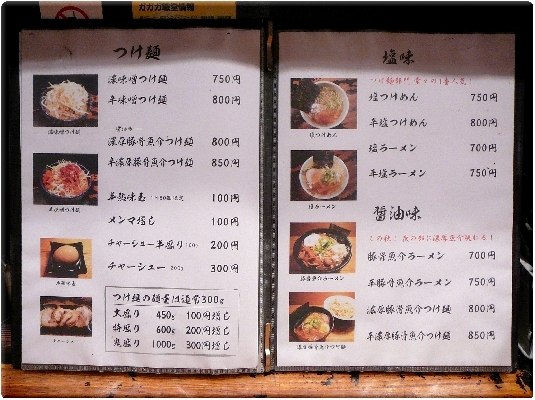 ガガガ職堂情報
つけ麺
濃味噌つけ麺 750円
辛味噌つけ麺 800円
濃厚豚骨魚介つけ麺 800円
辛濃厚豚骨魚介つけ麺 850円
半熟味玉 100円
メンマ増し 100円
チャーシュー半盛り 200円
チャーシュー 200g 300円
つけ麺の麺量は通常300g
大盛り 450g 100円増し
特盛り 600g 200円増し
鬼盛り 1000g 300円増し
濃味噌つけ麺
辛味噌つけ麺
半熟味玉
チャーシュー
塩味
つけ麺部門 堂々の1番人気!
塩つけめん 750円
辛塩つけめん 800円
塩ラーメン 700円
辛塩ラーメン 750円
醤油味
豚骨魚介ラーメン 700円
辛豚骨魚介ラーメン 750円
濃厚豚骨魚介つけ麺 800円
辛濃厚豚骨魚介つけ麺 850円
塩つけめん
塩ラーメン
豚骨魚介ラーメン
濃厚豚骨魚介つけ麺